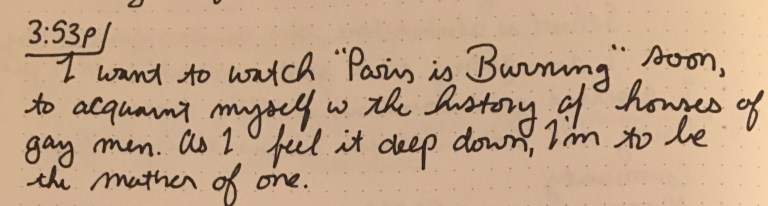 3:53p/
I want to watch "Paris is Burning" soon,
to acquaint myself w the history of houses of
gay men. As I feel it deep down, I'm to be
the mother of one.